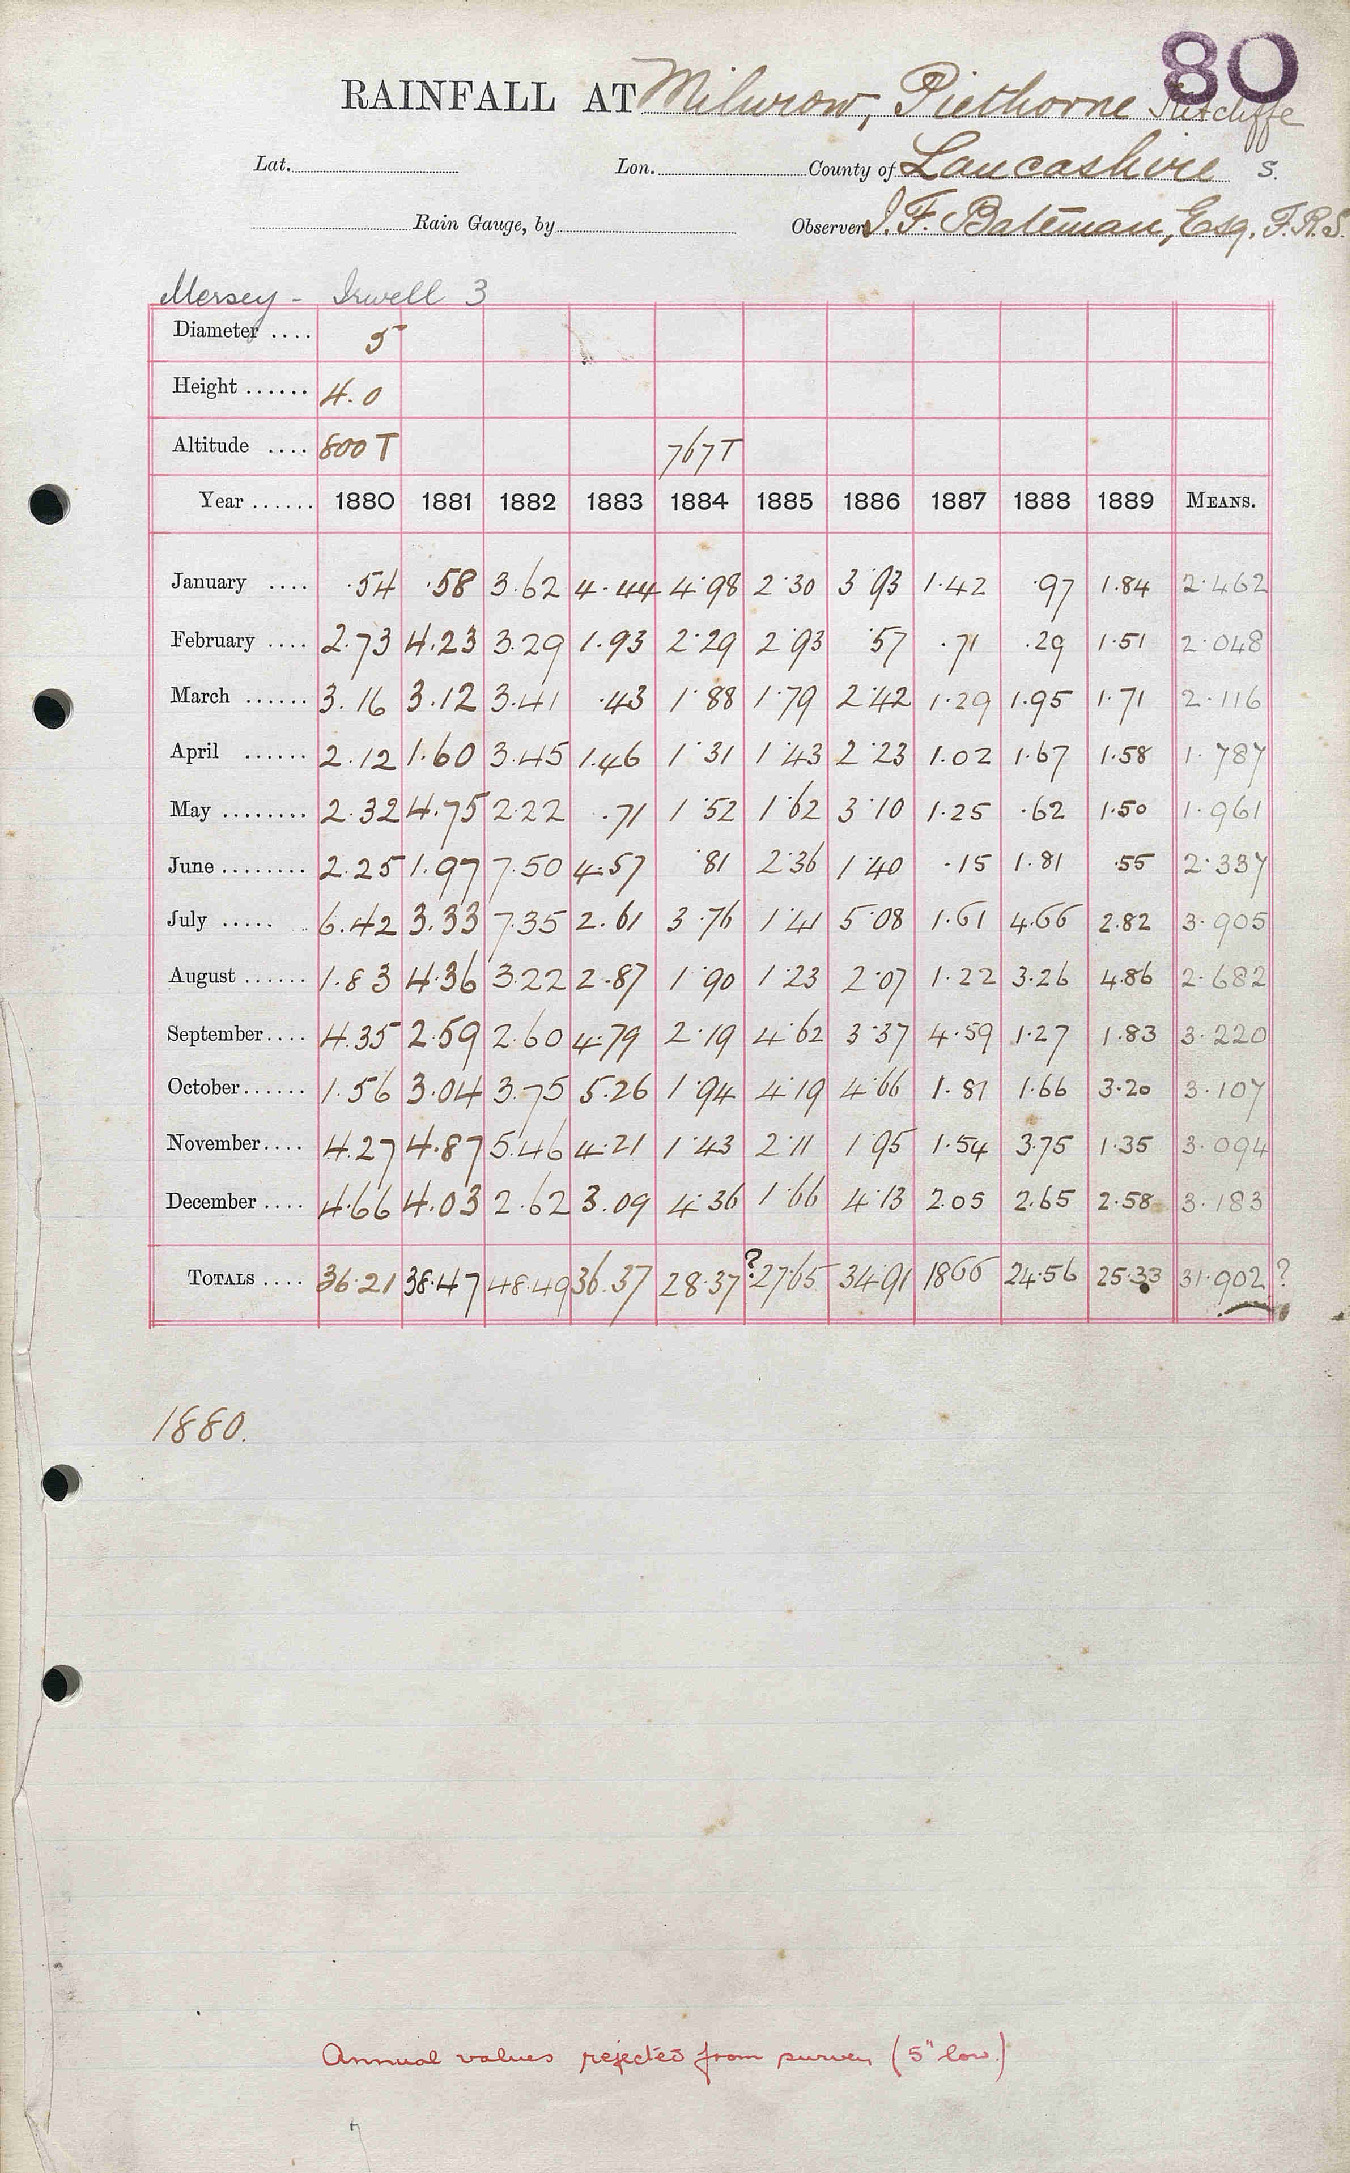 80
RAINFALL AT Milnrow, Piethorne Sutcliffe
Lat. Lon. County of Lancashire S.
Rain Gauge, by Observer J. F. Bateman, Esq. F.R.S.
Mersey - Irwell 3
Diameter .... 5
Height ...... 4.0
Altitude .... 800 T 767 T
Year ...... 1880 1881 1882 1883 1884 1885 1886 1887 1888 1889 MEANS.
January .... .54 .58 3.62 4.44 4.98 2.30 3.93 1.42 .97 1.84 2.462
February .... 2.73 4.23 3.29 1.93 2.29 2.93 .57 .71 .29 1.51 2.048
March ...... 3.16 3.12 3.41 .43 1.88 1.79 2.42 1.29 1.95 1.71 2.116
April ...... 2.12 1.60 3.45 1.46 1.31 1.43 2.23 1.02 1.67 1.58 1.787
May ........ 2.32 4.75 2.22 .71 1.52 1.62 3.10 1.25 .62 1.50 1.961
June ........ 2.25 1.97 7.50 4.57 .81 2.36 1.40 .15 1.81 .55 2.337
July ..... 6.42 3.33 7.35 2.61 3.76 1.41 5.08 1.61 4.66 2.82 3.905
August ...... 1.83 4.36 3.22 2.87 1.90 1.23 2.07 1.22 3.26 4.86 2.682
September.... 4.35 2.59 2.60 4.79 2.19 4.62 3.37 4.59 1.27 1.83 3.220
October...... 1.56 3.04 3.75 5.26 1.94 4.19 4.66 1.81 1.66 3.20 3.107
November.... 4.27 4.87 5.46 4.21 1.43 2.11 1.95 1.54 3.75 1.35 3.094
December .... 4.66 4.03 2.62 3.09 4.36 1.66 4.13 2.05 2.65 2.58 3.183
TOTALS .... 36.21 38.47 48.49 36.37 28.37 ? 27.65 34.91 18.66 24.56 25.33 31.902 ?
1880.
Annual values rejected from survey (5" low)